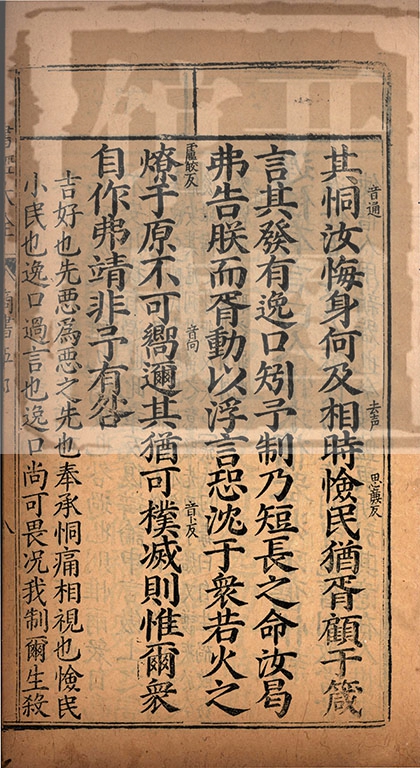 其恫汝悔身何及相時憸民猶胥顧于箴
音通
去声
思廉反
言其發有逸口矧予制乃短長之命汝曷
弗告朕而胥動以浮言恐沈于衆若火之
燎于原不可嚮邇其猶可樸滅則惟爾衆
盧皎反
音向
音卜反
自作弗靖非予有咎
吉好也先惡爲惡之先也奉承恫痛相視也憸民
小民也逸口過言也逸口尚可畏况我制爾生殺